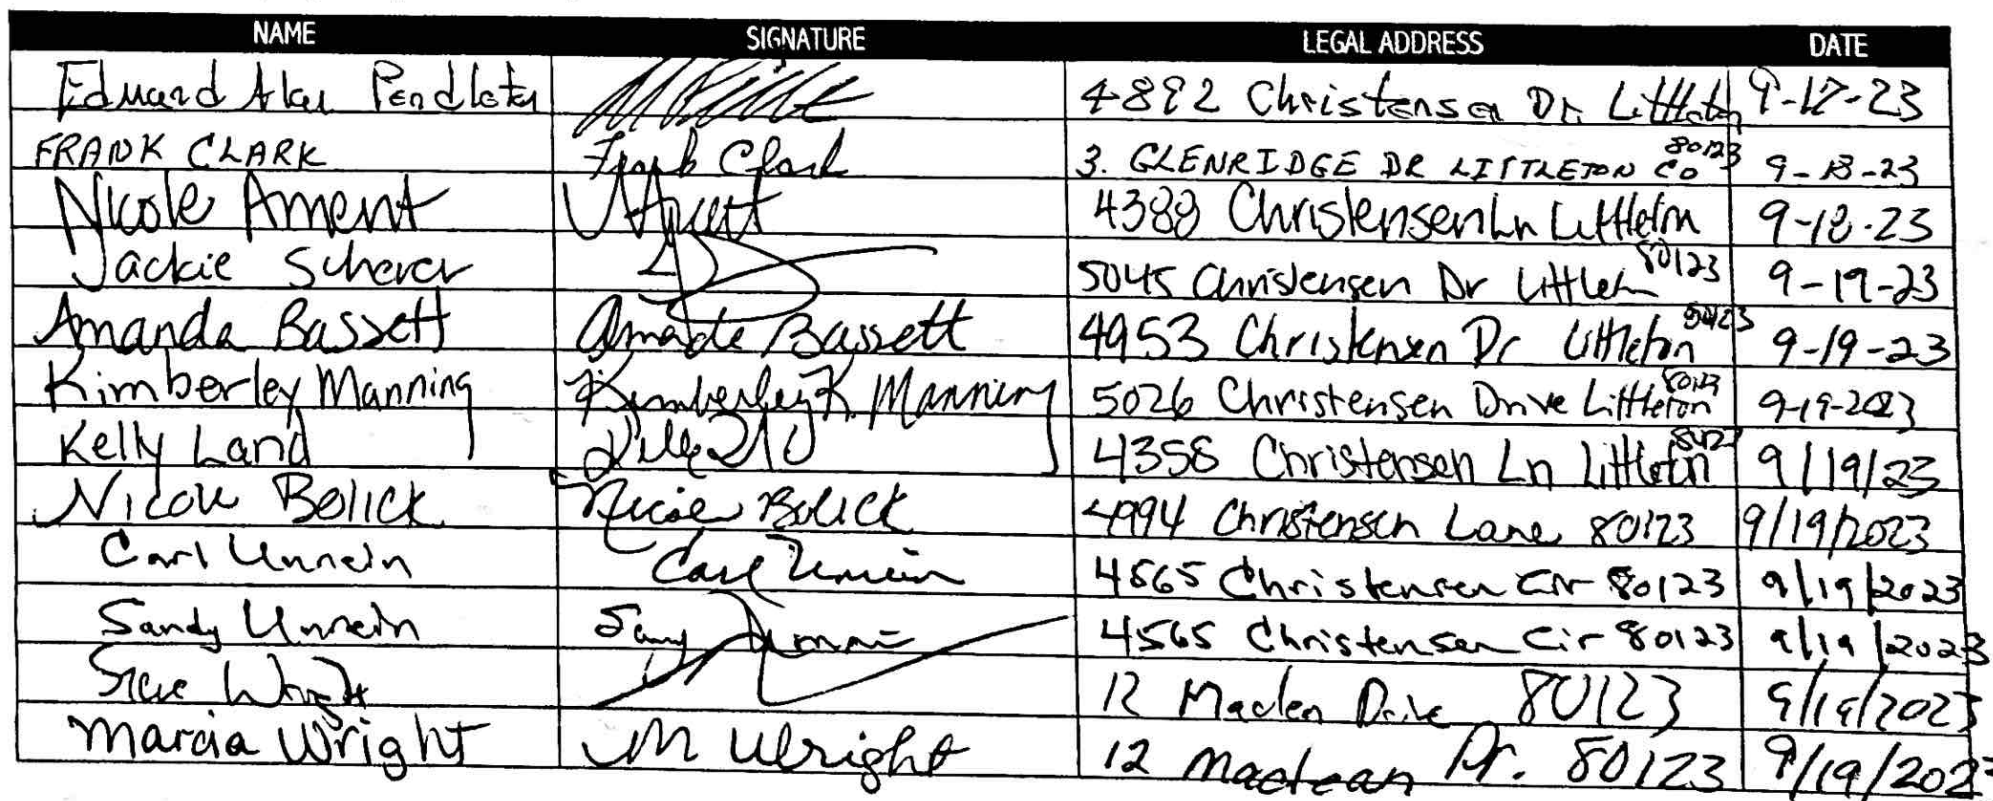 NAME SIGNATURE LEGAL ADDRESS DATE
Edward Alan Pendleton 4892 Christensen Dr. Littleton 9-17-23
FRANK CLARK Frank Clark 3. GLENRIDGE DR LITTLETON CO 80123 9-18-23
Nicole Ament 4388 Christensen Ln Littleton 9-18-23
Jackie Scherer 5045 Christensen Dr Littleton 80123 9-19-23
Amanda Bassett Amanda Bassett 4953 Christensen Dr Littleton 80123 9-19-23
Kimberley Manning Kimberley K. Manning 5026 Christensen Drive Littleton 80123 9-19-2023
Kelly Land 4358 Christensen Ln Littleton 80123 9/19/23
Nicole Bolick Nicole Bolick 4994 Christensen Lane 80123 9/19/2023
Carl Unrein Carl Unrein 4565 Christensen Cir 80123 9/19/2023
Sandy Unrein Sandy Unrein 4565 Christensen Cir 80123 9/19/2023
Steve Wright 12 Maclean Drive 80123 9/19/2023
Marcia Wright M Wright 12 Maclean Dr. 80123 9/19/2023